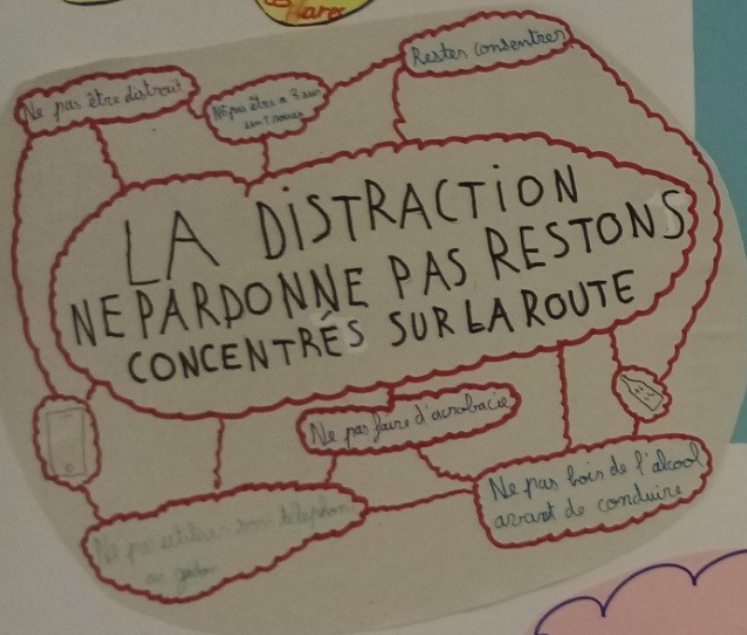 Hares
Restes consentrer
Ne pas être distrait
Ne pas être a 3 sur
un 2 roues
LA DiSTRACTiON
NE PARDONNE PAS RESTONS
CONCENTRÊS SUR LA ROUTE
Ne pas faire d'acrobacie
Ne pas boir de l'alcool
avant de conduire
Ne pas utiliser son téléphon
au